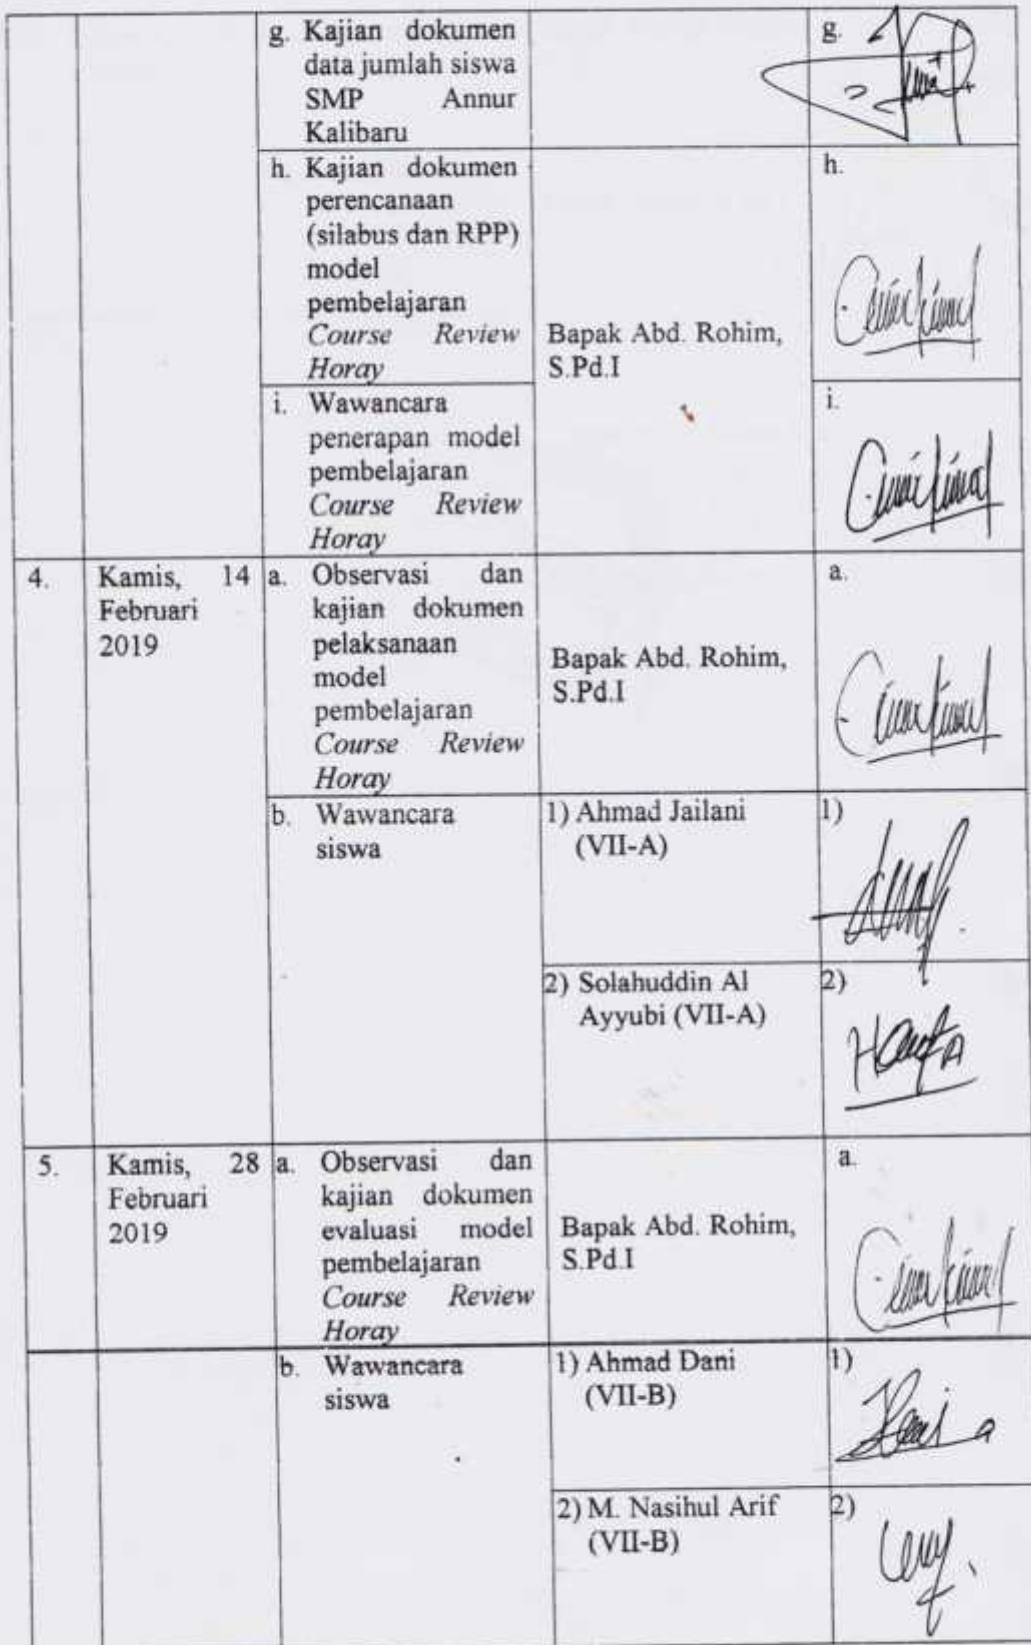 g. Kajian dokumen
data jumlah siswa
SMP Annur
Kalibaru
g.
h. Kajian dokumen
perencanaan
(silabus dan RPP)
model
pembelajaran
Course Review
Horay
Bapak Abd. Rohim,
S.Pd.I
h.
i. Wawancara
penerapan model
pembelajaran
Course Review
Horay
i.
4. Kamis, 14
Februari
2019
a. Observasi dan
kajian dokumen
pelaksanaan
model
pembelajaran
Course Review
Horay
Bapak Abd. Rohim,
S.Pd.I
a.
b. Wawancara
siswa
1) Ahmad Jailani
(VII-A)
1)
2) Solahuddin Al
Ayyubi (VII-A)
2)
5. Kamis, 28
Februari
2019
a. Observasi dan
kajian dokumen
evaluasi model
pembelajaran
Course Review
Horay
Bapak Abd. Rohim,
S.Pd.I
a.
b. Wawancara
siswa
1) Ahmad Dani
(VII-B)
1)
2) M. Nasihul Arif
(VII-B)
2)